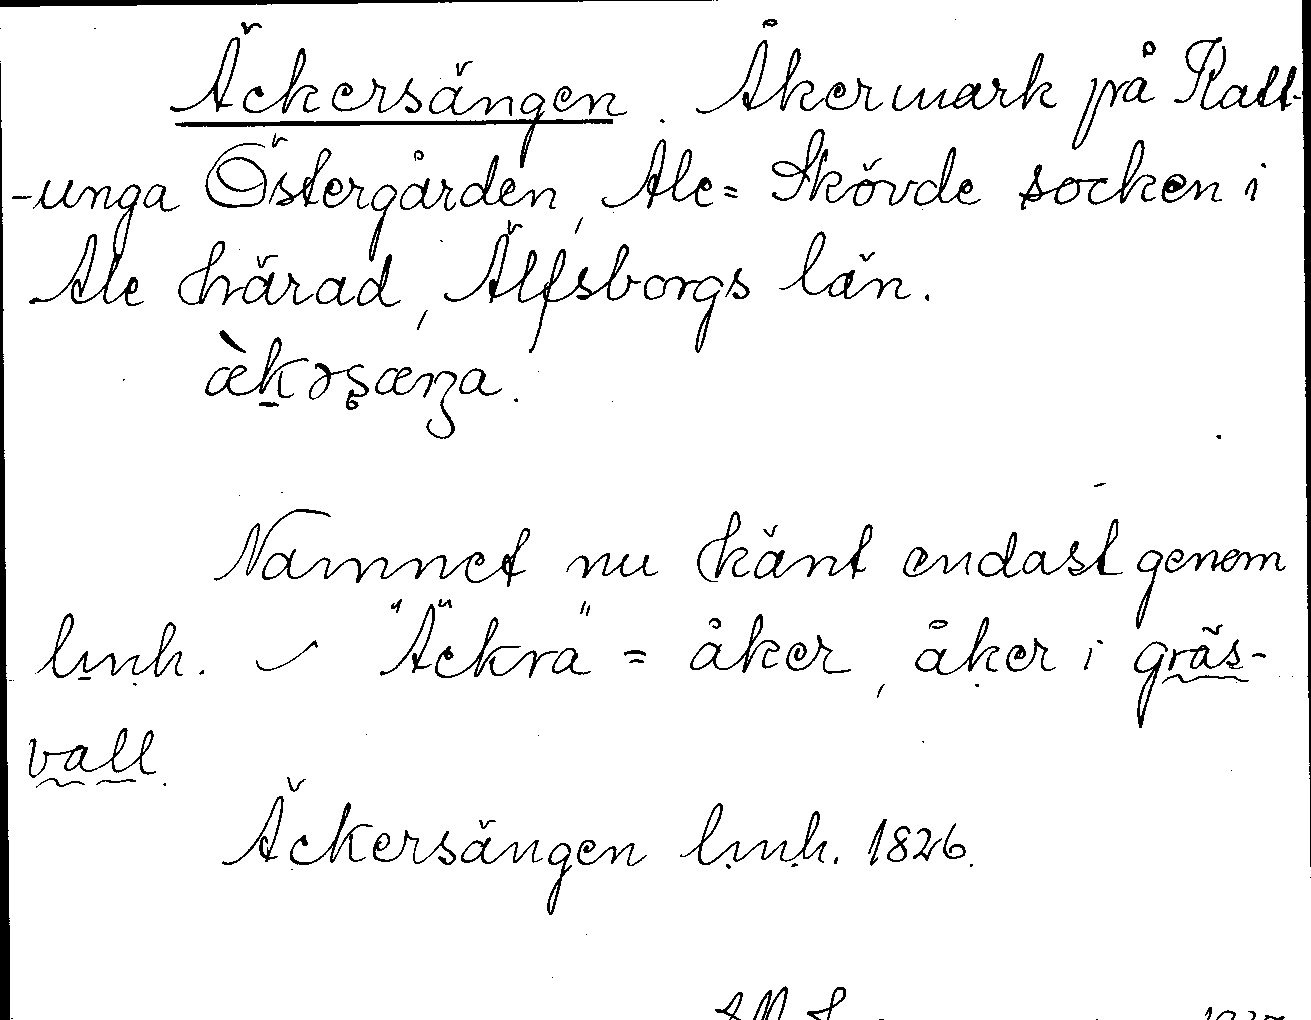 Äckersängen. Åkermark på Ratt-
-unga Östergården, Ale=Skövde socken i
Ale härad, Älfsborgs län.
æ̀kərʂæŋa.
Namnet nu känt endast genom
lmh. "Äckra" = åker, åker i gräs-
vall.
Äckersängen lmh. 1826.